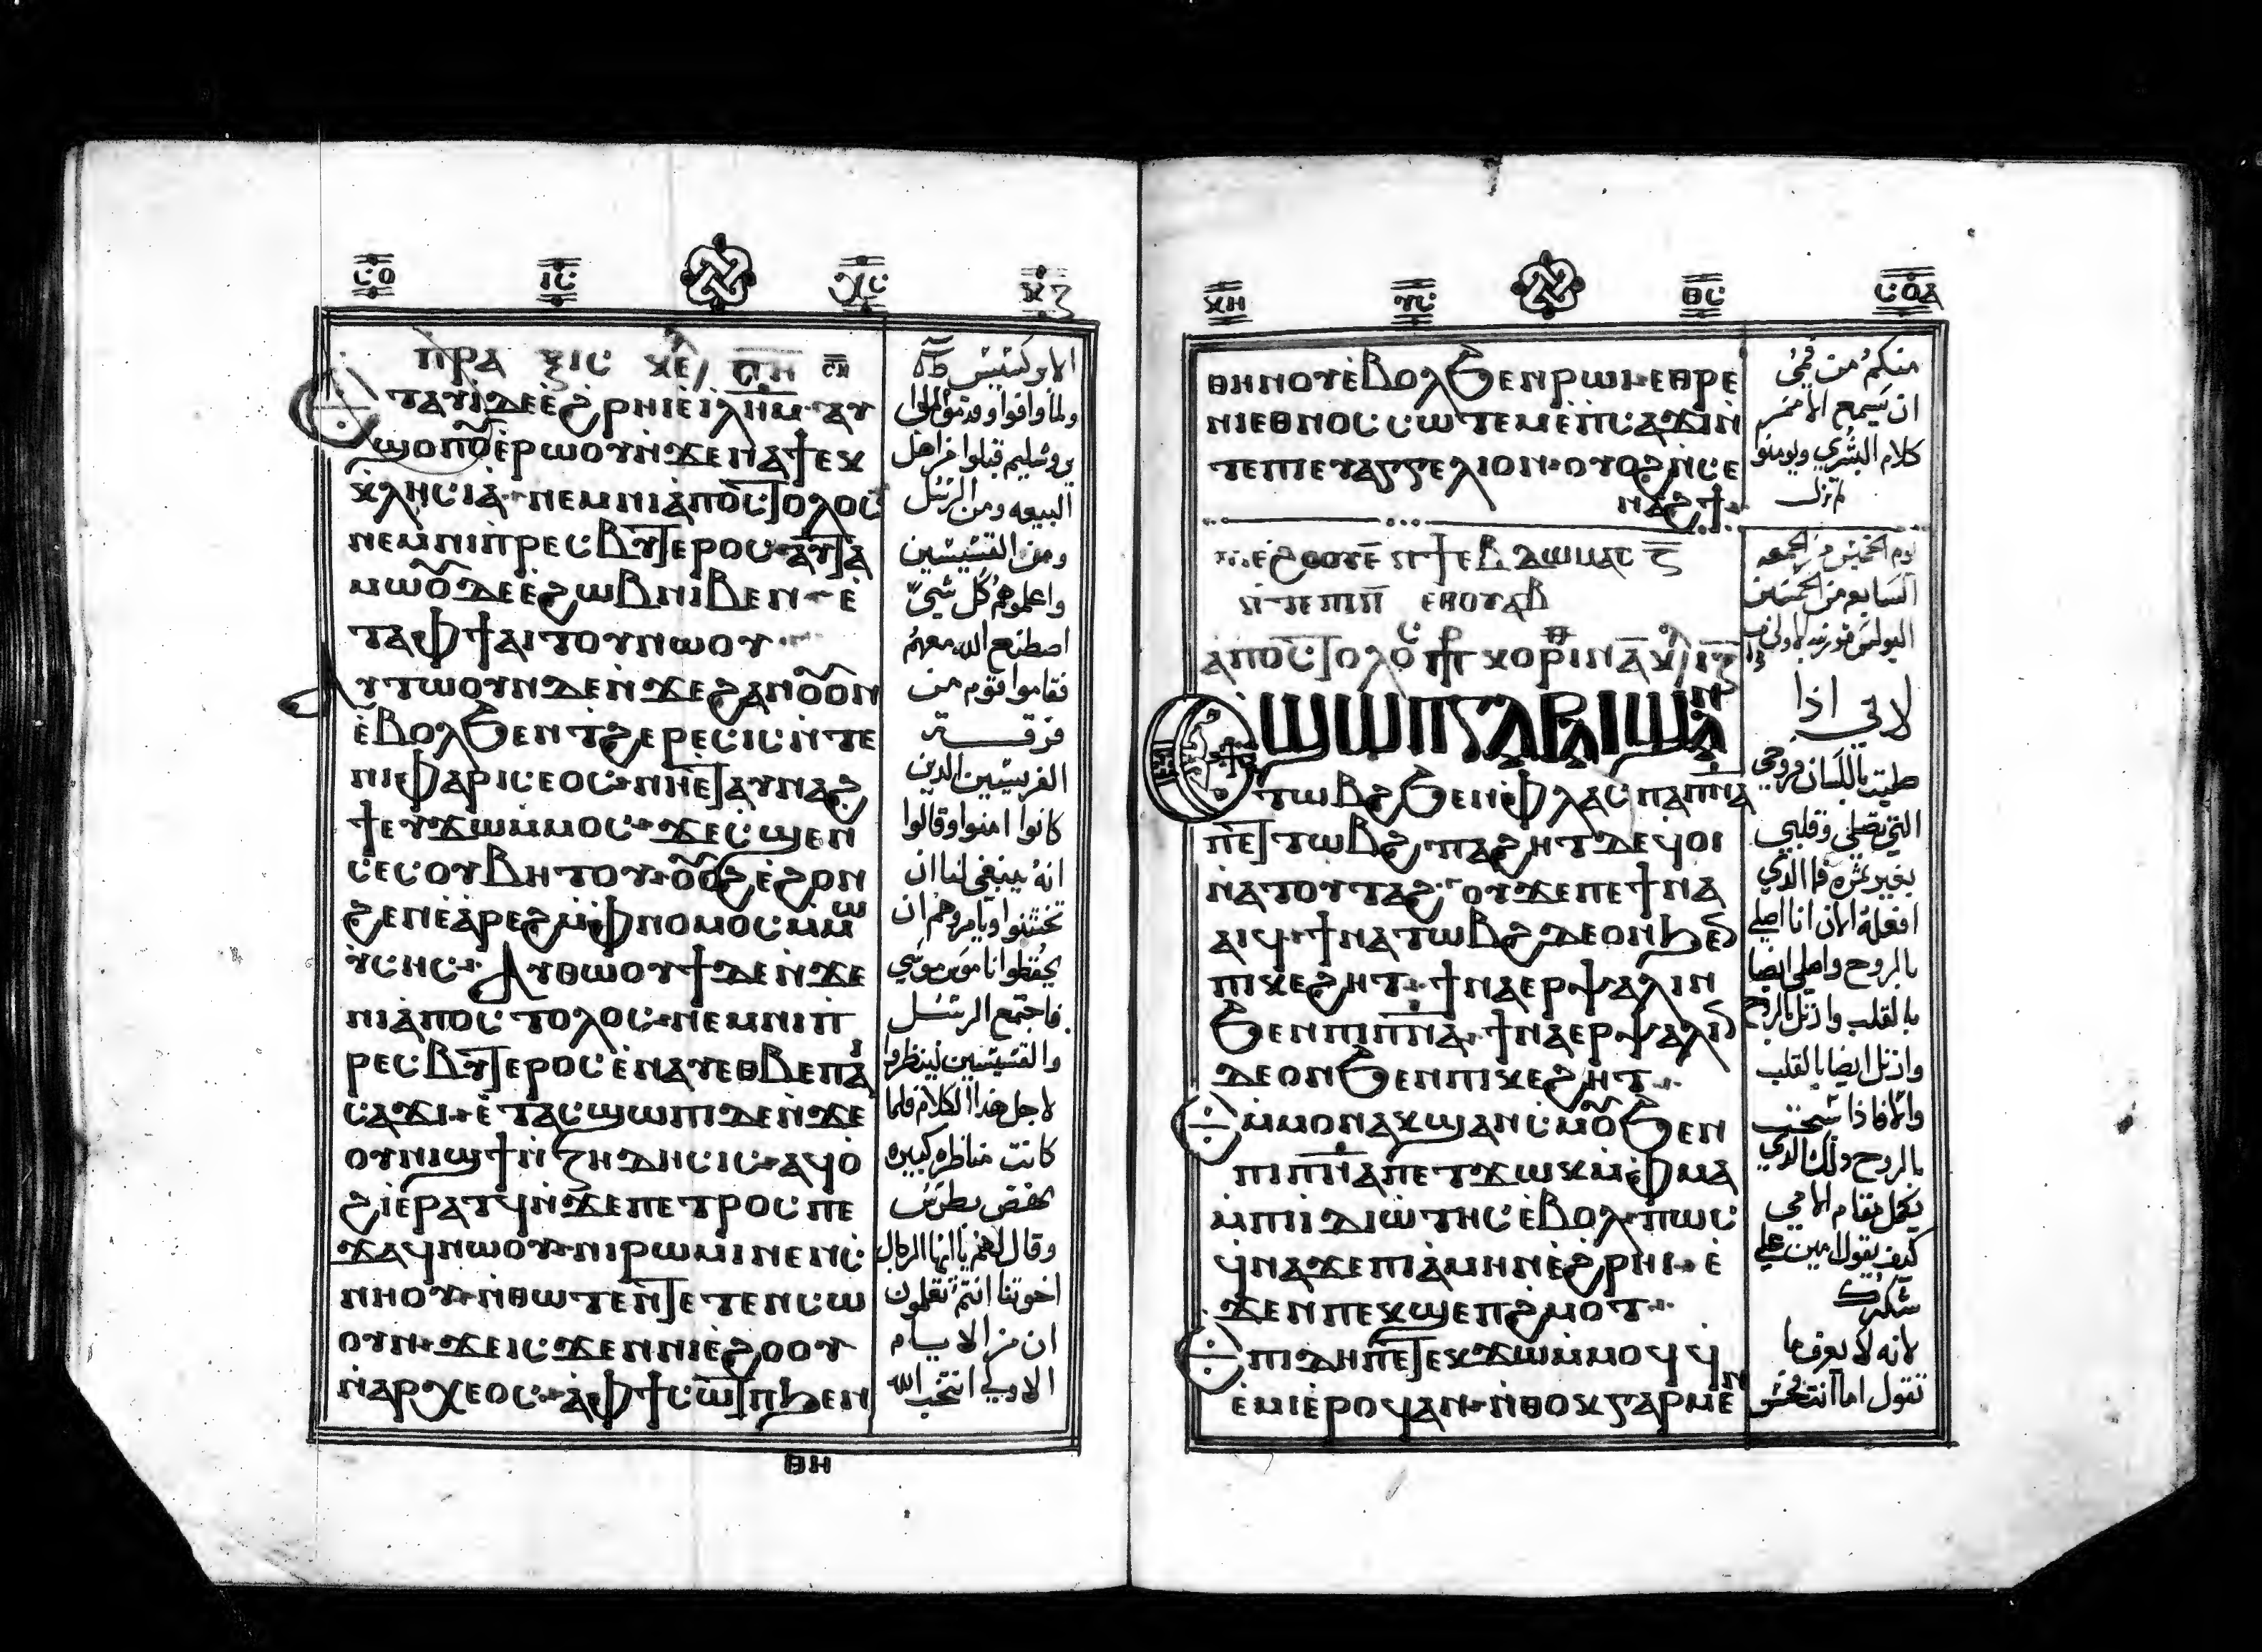 ⲥⲟ ⲓⲥ ⲭⲥ ⲕⲍ
ⲡⲣⲁ ⲝⲓⲥ ⲕⲉ
ⲉⲧⲁⲩⲓ̀ⲇⲉⲉ̀ϩⲣⲏⲓⲉ̀ⲓⲗⲏⲙ ⲁⲩ
ϣⲟⲡⲟ̅ⲉ̀ⲣⲱⲟⲩⲛ̀ϫⲉⲛⲁϯⲉⲕ
ⲕⲗⲏⲥⲓⲁ̀ ⲛⲉⲙⲛⲓⲁ̀ⲡⲟⲥⲧⲟⲗⲟⲥ
ⲛⲉⲙⲛⲓⲡⲣⲉⲥⲃⲩⲧⲉⲣⲟⲥ ⲁⲩⲧⲁ
ⲙⲱⲟ̅ⲇⲉⲉ̀ϩⲱⲃⲛⲓⲃⲉⲛ ⲉ̀
ⲧⲁⲫϯⲁⲓⲧⲟⲩⲛⲱⲟⲩ
ⲁⲩⲧⲱⲟⲩⲛⲇⲉⲛ̀ϫⲉϩⲁⲛⲟ̅ⲟⲛ
ⲉ̀ⲃⲟⲗϧⲉⲛⲧϩⲉⲣⲉⲥⲓⲥⲛ̀ⲧⲉ
ⲛⲓⲫⲁⲣⲓⲥⲉⲟⲥ ⲛⲏⲉ̀ⲧⲁⲩⲛⲁϩ
ϯⲉⲩϫⲱⲙ̀ⲙⲟⲥ ϫⲉⲥ̀ϣⲉⲛ
ⲥⲉⲥⲟⲩⲃⲏⲧⲟⲩ ⲟ̅ⲟϩⲉ̀ϩⲟⲛ
ϩⲉⲛⲉ̀ⲁ̀ⲣⲉϩⲙ̀ⲫⲛⲟⲙⲟⲥⲙ̀ⲙⲱ
ⲩ̀ⲥⲏⲥ ⲁⲩⲑⲱⲟⲩϯⲇⲉⲛ̀ϫⲉ
ⲛⲓⲁ̀ⲡⲟⲥⲧⲟⲗⲟⲥ ⲛⲉⲙⲛⲓⲡ
ⲣⲉⲥⲃⲩⲧⲉⲣⲟⲥⲉ̀ⲛⲁⲩⲉⲑⲃⲉⲡⲁⲓ
ⲥⲁϫⲓ ⲉ̀ⲧⲁⲥϣⲱⲡⲓⲇⲉⲛ̀ϫⲉ
ⲟⲩⲛⲓϣϯⲛ̀ⲍⲏⲇⲏⲥⲓⲥ ⲁϥⲟ̀
ϩⲓⲉ̀ⲣⲁⲧϥⲛ̀ϫⲉⲡⲉⲧⲣⲟⲥ ⲡⲉ
ϫⲁϥⲛⲱⲟⲩ ⲛⲓⲣⲱⲙⲓⲛⲉⲛⲥ̀
ⲛⲏⲟⲩ ⲛ̀ⲑⲱⲧⲉⲛ̀ⲧⲉⲧⲉⲛⲥⲱ
ⲟⲩⲛ ϫⲉⲓⲥϫⲉⲛⲛⲓⲉ̀ϩⲟⲟⲩ
ⲛ̀ⲁⲣⲭⲉⲟⲥ ⲁ̀ⲫϯⲥⲱⲧⲡϧⲉⲛ
ⲑⲏ
ولما وافوا وقدموا الى
يروشليم قبلوا من اهل
البيعه ومن الرسل
ومن القسيسين
واعلموهم كل شي
اصطنع الله معهم
فقاموا قوم من
فرقة
الفريسيين الدين
كانوا امنوا وقالوا
انه ينبغي لنا ان
تختتنوا ويامروهم ان
يحفظوا ناموس موسي
فاجتمع الرسل
والقسيسين لينظروا
لاجل هدا الكلام فلما
كانت مناظره كبيره
نهض بطرس
وقال لهم يا ايها الرجال
اخوتنا انتم تعلمون
ان من الايام
الاولي انتخب الله
ⲕⲏ ⲩⲥ ⲑⲥ ⲥⲟⲁ
ⲑⲏⲛⲟⲩⲉ̀ⲃⲟⲗϧⲉⲛⲣⲱⲓ ⲉⲑⲣⲉ
ⲛⲓⲉⲑⲛⲟⲥⲥⲱⲧⲉⲙⲉ̀ⲡⲥⲁϫⲓⲛ̀
ⲧⲉⲡⲓⲉⲩⲁⲅⲅⲉⲗⲓⲟⲛ ⲟⲩⲟϩⲛ̀ⲥⲉ
ⲛⲁϩϯ
ⲁⲡⲟⲥⲧⲟⲗⲟ ⲕⲟⲣⲓⲛⲁ
ⲉϣⲱⲡⲅⲁⲣⲁⲓϣⲁⲛ
ⲧⲱⲃϩϧⲉⲛⲫⲗⲁⲥ ⲡⲁⲡⲛⲁ
ⲡⲉⲧⲧⲱⲃϩ ⲡⲁϩⲏⲧⲇⲉϥⲟⲓ
ⲛⲁⲧⲟⲩⲧⲁϩ ⲟⲩϫⲉⲡⲉϯⲛⲁ
ⲁⲓϥ ϯⲛⲁⲧⲱⲃϩⲇⲉⲟⲛϧⲉⲛ
ⲡⲓⲕⲉϩⲏⲧ ϯⲛⲁⲉⲣⲯⲁⲗⲓⲛ
ϧⲉⲛⲡⲓⲡⲛⲁ ϯⲛⲁⲉⲣⲯⲁⲗⲓⲛ
ⲇⲉⲟⲛϧⲉⲛⲡⲓⲕⲉϩⲏⲧ
ⲙ̀ⲙⲟⲛⲁⲕϣⲁⲛⲥ̀ⲙⲟ̅ϧⲉⲛ
ⲡⲓⲡⲛⲁⲡⲉⲧϫⲱⲕⲙ̀ⲫⲙⲁ
ⲙ̀ⲡⲓⲓⲇⲓⲱⲧⲏⲥⲉ̀ⲃⲟⲗ ⲡⲱⲥ
ϥ̀ⲛⲁϫⲉⲡⲓⲁ̀ⲙⲏⲛⲉ̀ϩⲣⲏⲓ ⲉ̀
ϫⲉⲛⲡⲉⲕϣⲉⲡϩ̀ⲙⲟⲧ
ⲉⲡⲓⲇⲏⲡⲉⲧⲉⲕϫⲱⲙ̀ⲙⲟϥϥ̀
ⲉ̀ⲙⲓⲉ̀ⲣⲟϥⲁⲛ ⲛ̀ⲑⲟⲕⲅⲁⲣⲙⲉⲛ
منكم من فمي
ان يسمع الامم
كلام البشري ويومنوا
لم تزل
يوم الخميس من الجمعه
السابعه من الخمسين
لاني اذا
صليت باللسان فروحي
التي تصلي وقلبي
بغير ثمره فما الذي
افعله الان انا اصلي
بالروح واصلي ايضا
بالقلب وارتل بالروح
وارتل ايضا بالقلب
والا فاذا سبحت
بالروح ولك الذي
يكمل مقام الامي
كيف يقول امين علي
شكرك
لانه لا يعرف ما
تقول اما انت